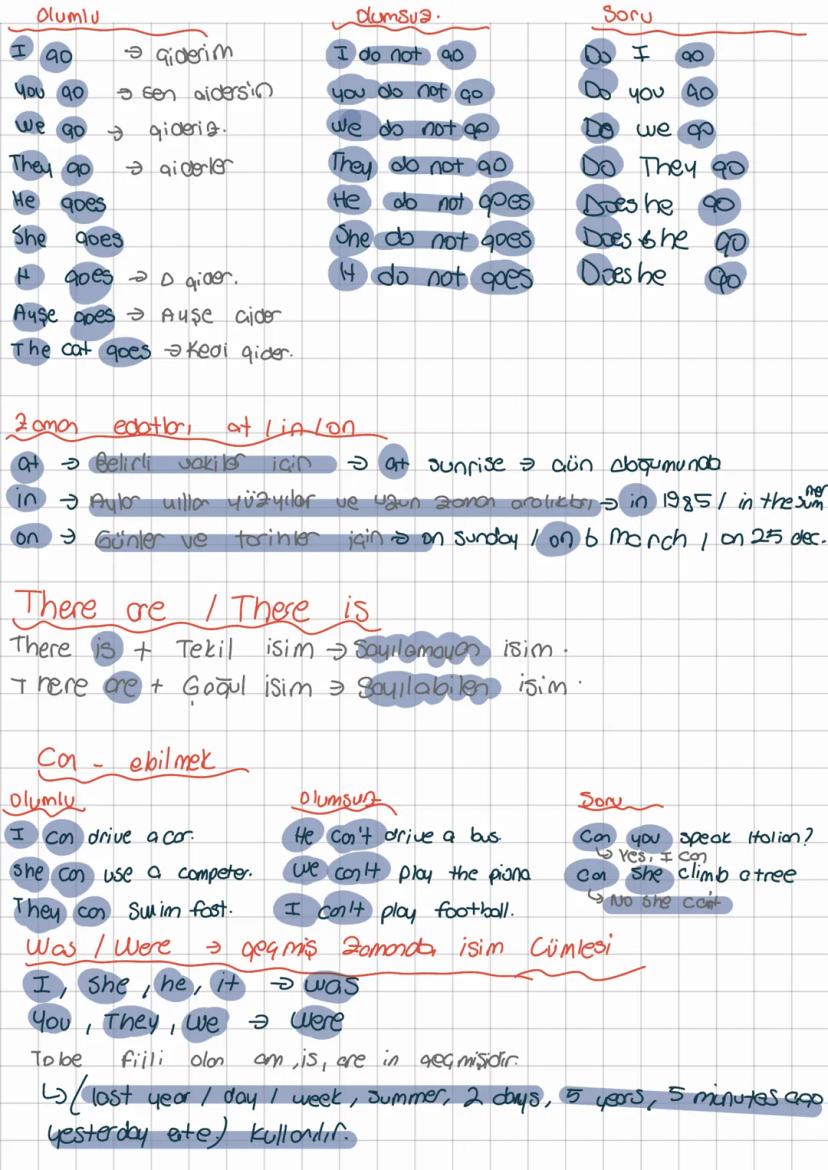 Olumlu Olumsuz. Soru
I go → giderim I do not go Do I go
You go → sen gidersin you do not go Do you go
We go → gideriz. we do not go Do we go
They go → giderler They do not go Do They go
He goes He do not goes Does he go
She goes She do not goes Does she go
It goes → O gider. It do not goes Does he go
Ayşe goes → Ayşe gider
The cat goes → Kedi gider.
Zaman edatları at / in / on
at → Belirli vakitler için → at sunrise → gün doğumunda
in → Aylar yıllar yüzyıllar ve uzun zaman aralıkları → in 1985 / in the summer
on → Günler ve tarihler için → on sunday / on 6 March / on 25 dec.
There are / There is
There is + Tekil isim → Sayılamayan isim.
There are + Çoğul isim → Sayılabilen isim.
Can - ebilmek
Olumlu Olumsuz Soru
I can drive a car. He can't drive a bus. Can you speak Italian?
↳ Yes, I can
She can use a competer. we can't play the piano Can she climb a tree
They can swim fast. I can't play football. ↳ No she can't
Was / Were → geçmiş Zamanda isim Cümlesi
I, She, he, it → was
You, They, we → were
To be fiili olan am, is, are in geçmişidir.
↳ (last year / day / week, summer, 2 days, 5 years, 5 minutes ago
yesterday ) kullanılır.